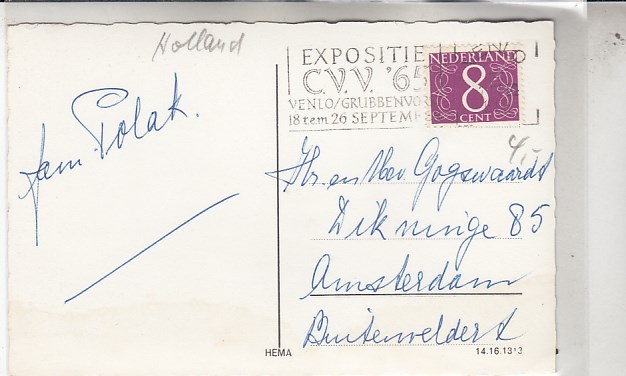 Holland
EXPOSITIE
C.V.V. '65
VENLO/GRUBBENVOR
18 t.em 26 SEPTEMB
NEDERLAND
8
CENT
4,-
fam. Polak.
Hr. en Mev. Gogswaardt
Dikninge 85
Amsterdam
Buitenveldert
HEMA
14.16.1313